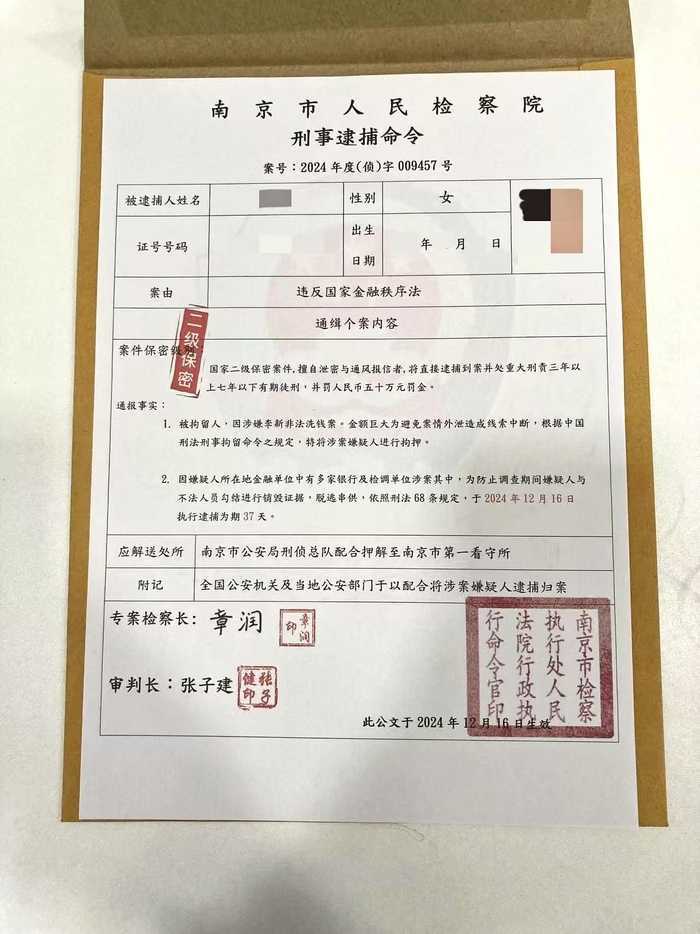 南京市人民检察院
刑事逮捕命令
案号：2024 年度(侦)字 009457 号
被逮捕人姓名
性别
女
证号号码
出生
日期
年 月 日
案由
违反国家金融秩序法
通缉个案内容
二级保密
案件保密级别：
国家二级保密案件,擅自泄密与通风报信者,将直接逮捕到案并处重大刑责三年以
上七年以下有期徒刑，并罚人民币五十万元罚金。
通报事实：
1. 被拘留人，因涉嫌李新非法洗钱案。金额巨大为避免案情外泄造成线索中断，根据中国
刑法刑事拘留命令之规定，特将涉案嫌疑人进行拘押。
2. 因嫌疑人所在地金融单位中有多家银行及检调单位涉案其中，为防止调查期间嫌疑人与
不法人员勾结进行销毁证据，脱逃串供，依照刑法 68 条规定，于 2024 年 12 月 16 日
执行逮捕为期 37 天。
应解送处所
南京市公安局刑侦总队配合押解至南京市第一看守所
附记
全国公安机关及当地公安部门于以配合将涉案嫌疑人逮捕归案
专案检察长：章润
章润印
审判长：张子建
张子健印
南京市检察
执行处人民
法院行政执
行命令官印
此公文于 2024 年 12 月 16 日生效